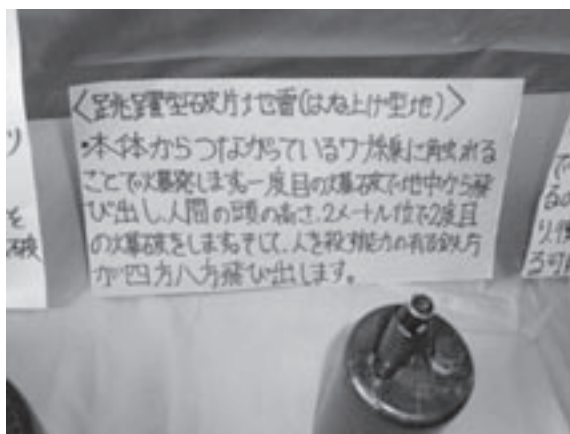 <跳躍型破片地雷(はね上げ型地)>
・本体からつながっているワナ線に触れる
ことで爆発します。一度目の爆破で地中から飛
び出し、人間の頭の高さ、2メートル位で2度目
の爆破をします。そして、人を殺す能力の有る鉄片
が四方八方飛び出します。
り
を
破
で
るの
り
る可